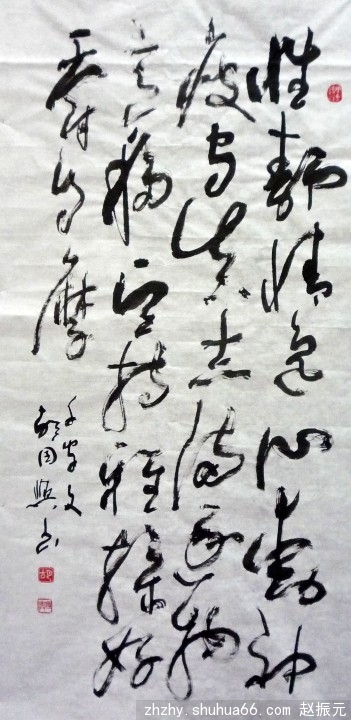 性静情逸心動神
疲守真志满逐物
意移坚持雅操好
爵自縻
千字文
书
zhzhy.shuhua66.com 赵振元